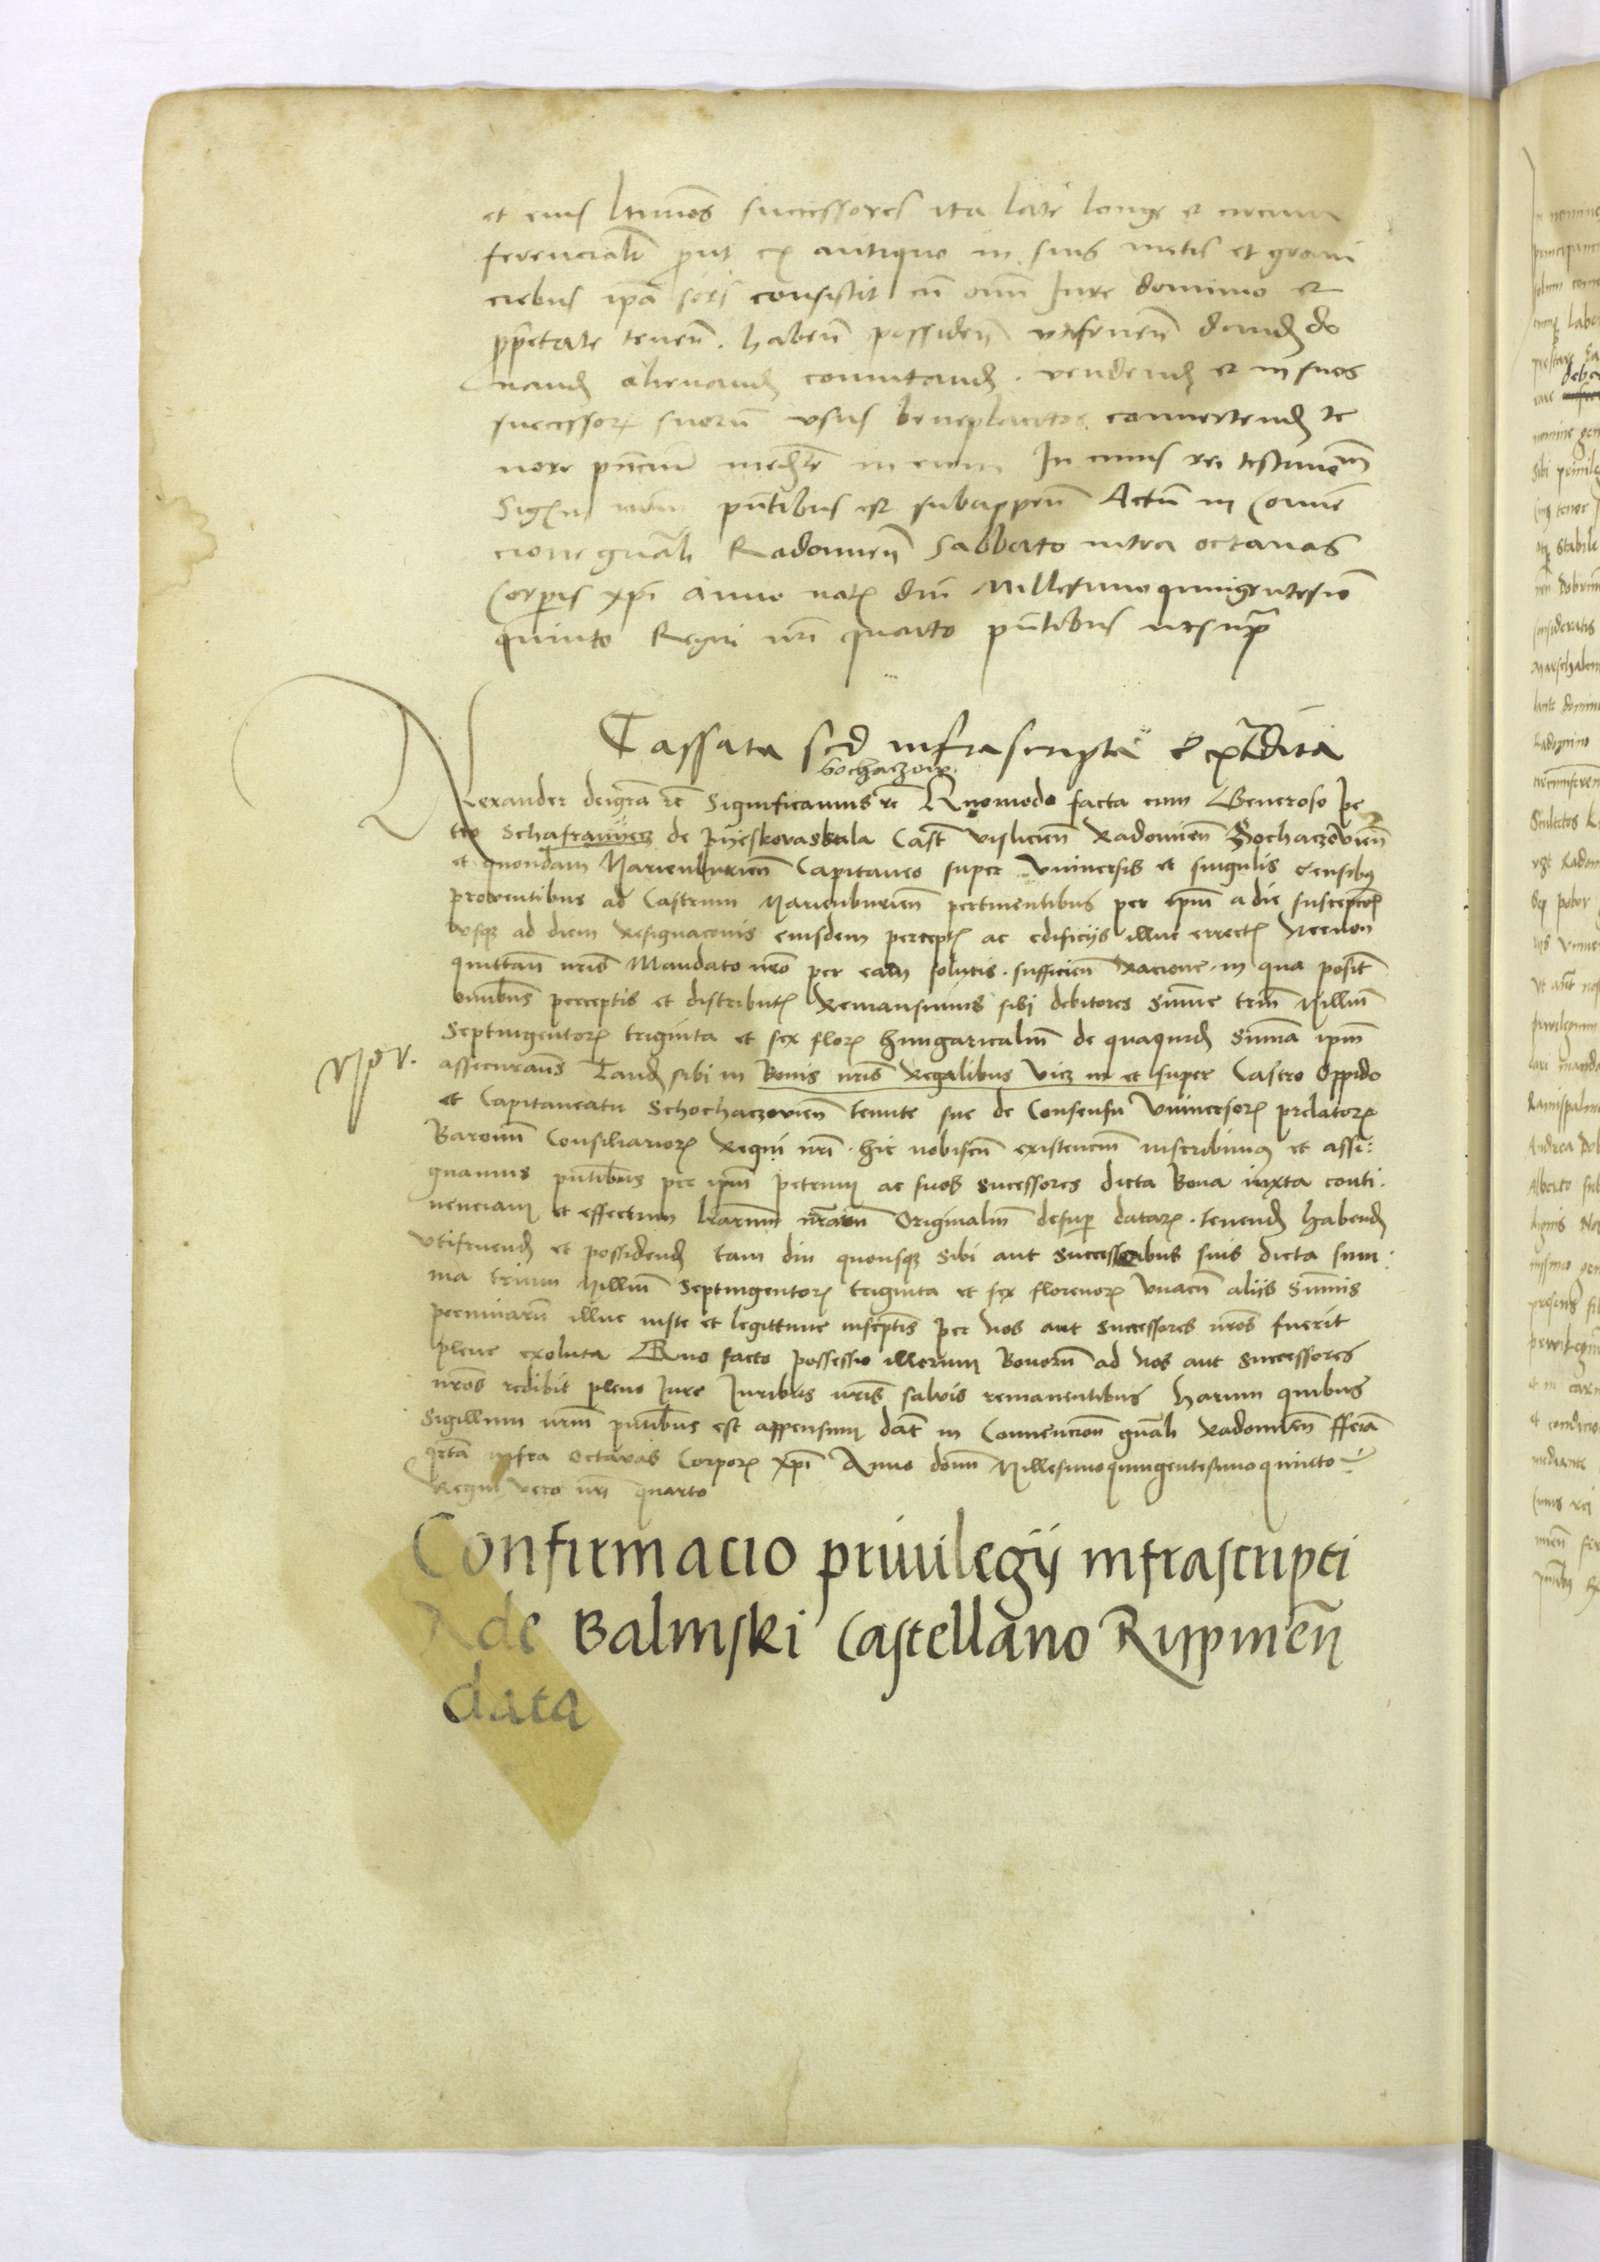 et eius ltimos successores ita late longe et circum
ferencialr prout ex antiquo in suis metis et grani
ciebus ipa sors consistit cu omi Jure dominio et
pprietate tenen. haben possiden utifruen dand do
nand alienand comutand. vendend et in suos
successor suoru usus beneplacitos convertend te
nore pncium medte in evum In cuius rei testimom
Sigm nrm pntibus est subappen Actu in Conven
cione gnali Radomien Sabbato intra octavas
Corpis xpi Anno nat dni Millesimo quingentesio
quinto Regni nri quarto pntibus ut supra
Cassata sed infrascripta expedita
Sochaczow
Alexander dei gra re Significamus re Quomodo facta cum Generoso Pe
tro Schafranyecz de Pyeskovaskala Cast vislicien Radomien Sochaczovien
et quondam Marienburien Capitaneo super Universis et singulis censibus
proventibus ad Castrum Marienburien pertinentibus per ipm a die suscepcois
usque ad diem Resignacionis eiusdem percept ac edificiis illuc errect Necnon
quittan nris Mandato nro per eum solutis. sufficien Racione. in qua posit
omnibus perceptis et distribut Remansimus sibi debitores Sume triu Milliu
Septingentor triginta et sex flor Hungaricaliu de quaquid Summa ipm
assecurans Tand sibi in Bonis nris Regalibus vicz in et super Castro Oppido
et Capitaneatu Schochaczovien tenute sue de Consensu Universor prelator
Baronu Consiliarior Regni nri. hic nobiscu existenciu inscribimus et assi
gnamus pntibus per ipm Petrum ac suos sucessores dicta Bona iuxta conti
nenciam et effectum lrarum nrarum Originaliu desup datar. tenend habend
utifruend et possidend tam diu quousque sibi aut successoribus suis dicta sum
ma trium Milliu Septingentor triginta et sex florenor Unacu aliis Summis
pecuniaru illuc iuste et legittime inscriptis per Nos aut successores nros fuerit
plene exoluta Quo facto possessio illorum Bonoru ad Nos aut Successores
nros redibit pleno Jure Juribus nris salvis remanentibus Harum quibus
Sigillum nrm pntibus est appensum dat in Convencion gnali Radomien fferia
qrta infra Octavas Corporis Xpi Anno domi Millesimoquingentesimoquinto
Regni vero nri quarto
Confirmacio privilegij infrascripti
de Balinski Castellano Rippinen
data